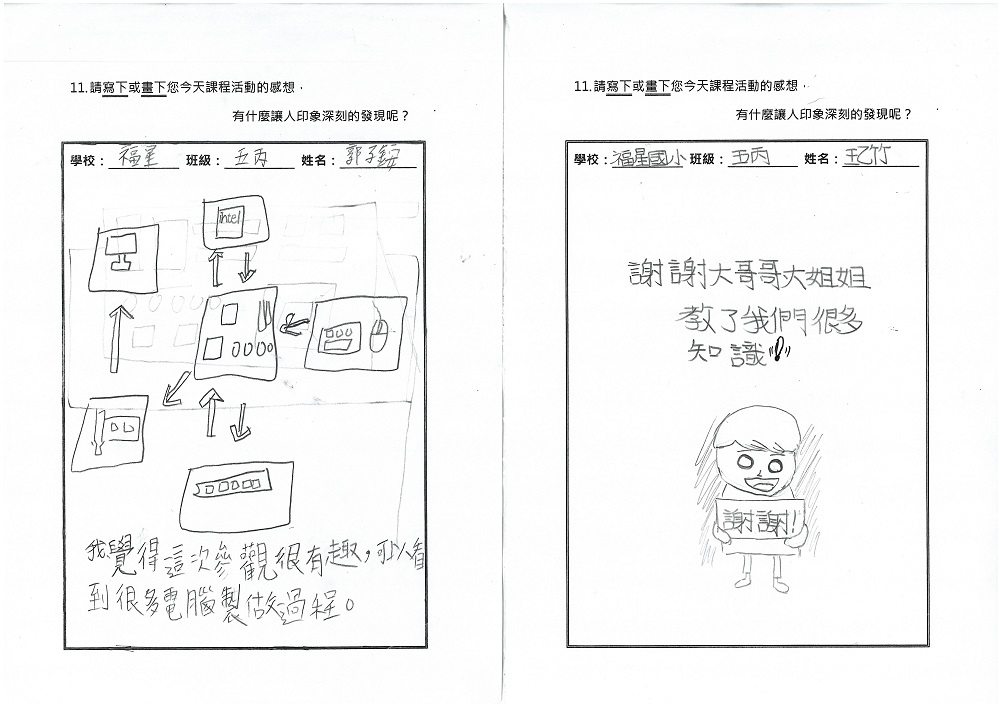 11.請寫下或畫下您今天課程活動的感想，
有什麼讓人印象深刻的發現呢？
學校：福星 班級：五丙 姓名：郭子
intel
我覺得這次參觀很有趣，可以看
到很多電腦製做過程。
11.請寫下或畫下您今天課程活動的感想，
有什麼讓人印象深刻的發現呢？
學校：福星國小 班級：五丙 姓名：王乙竹
謝謝大哥哥大姐姐
教了我們很多
知識!!!
謝謝!